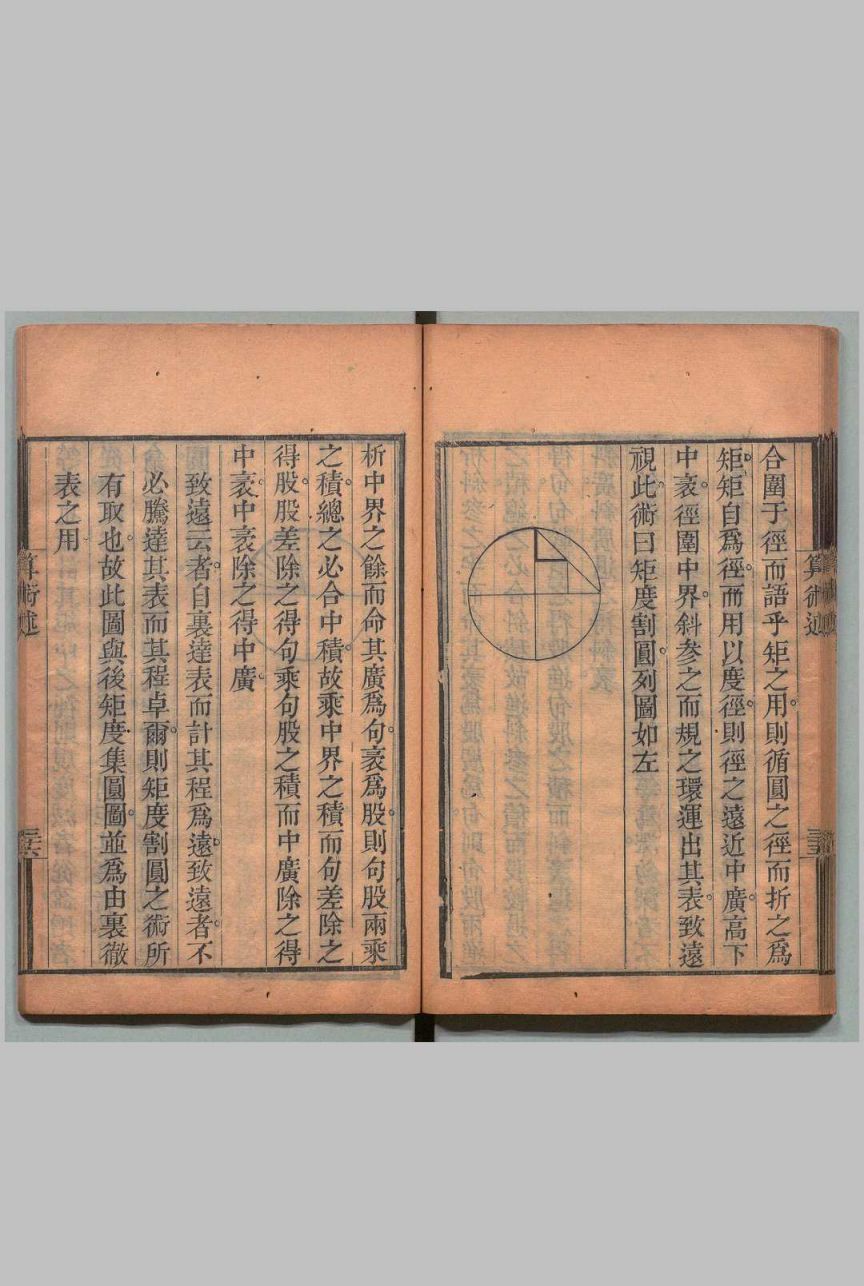 合圍于徑而語乎矩之用則循圓之徑而折之爲
矩矩自爲徑而用以度徑則徑之遠近中廣高下
中袤徑圍中界斜參之而規之環運出其表致遠
視此術曰矩度割圓列圖如左
析中界之餘而命其廣爲句袤爲股則句股兩乘
之積總之必合中積故乘中界之積而句差除之
得股股差除之得句乘句股之積而中廣除之得
中袤中袤除之得中廣
致遠云者自裏達表而計其程爲遠致遠者不
必騰達其表而其程卓爾則矩度割圓之術所
有取也故此圖與後矩度集圓圖並爲由裏徹
表之用
算術述